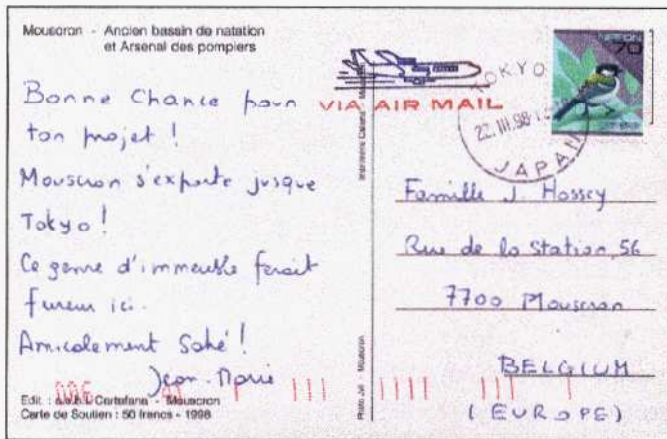 Mouscron - Ancien bassin de natation
et Arsenal des pompiers
Bonne Chance pour
ton projet !
Mouscron s'exporte jusque
Tokyo !
Ce genre d'immeuble ferait
fureur ici.
Amicalement Sohé !
Jean-Marie
Edit. : a.s.b.l. Cartofana - Mouscron
Carte de Soutien : 50 francs - 1998
Photo Jel Mouscron
Imprimerie
VIA AIR MAIL
TOKYO
22.III.98
JAPAN
NIPPON
70
Famille J. Hossey
Rue de la Station, 56
7700 Mouscron
BELGIUM
(EUROPE)